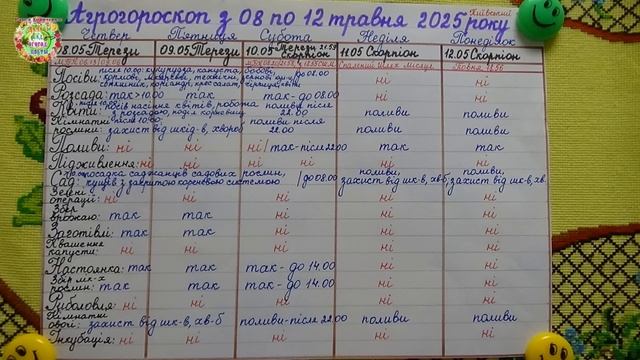 Агрогороскоп з 08 по 12 травня 2025 року
Київський
Четвер П'ятниця Субота Неділя Понеділок
08.05 Терези 09.05 Терези 10.05 Терези 11.05 Скорпіон 12.05 Скорпіон
Скорпіон
Посіви: після 10.00 кукурудза, капуста, бобові, до 08.00 ні ні
Розсада: так > 10.00 так так - до 08.00 ні ні
Квіти: посів насіння квітів, робота поливи після поливи поливи
з розсадою, 22.00
Кімнатні після 10.00 поливи після поливи поливи
рослини: захист від шкід-в, хвороб 22.00
Поливи: ні ні ні/так - після 22.00 так так
Підживлення: ні ні ні ні ні
Сад: пересадка саджанців садових рослин, до 08.00 поливи, поливи,
кущів з закритою кореневою системою захист від шк-в, хв-б, захист від шк-в, хв.
Зелені
операції: ні ні ні ні ні
Збір
врожаю: так так ні ні ні
Заготівлі: так так ні ні ні
Квашення
капусти: ні ні ні ні ні
Настоянка: так так так - до 14.00 ні ні
Збір лік-х
рослин: так так так - до 14.00 ні ні
Риболовля: ні ні ні ні ні
Кімнатні
овочі: захист від шк-в, хв-б поливи - після 22.00 поливи поливи
Інкубація: ні ні ні ні ні